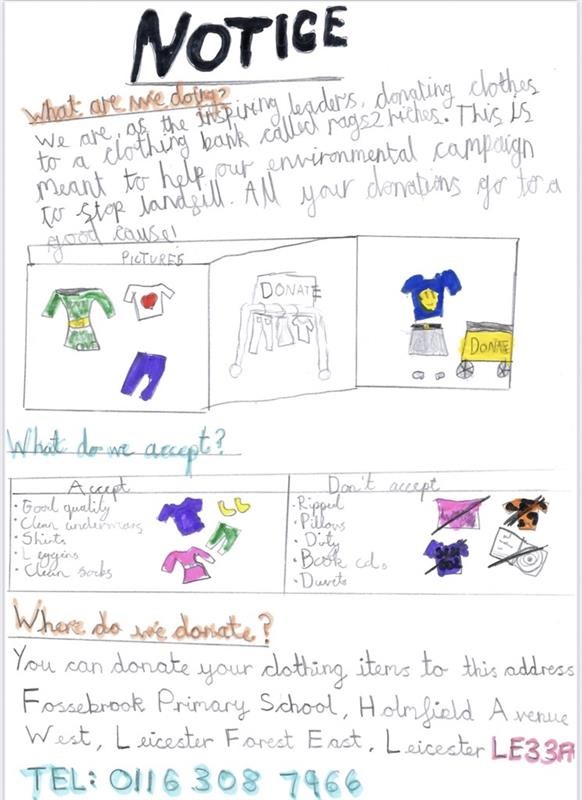 NOTICE
What are we doing?
We are, as the inspiring leaders, donating clothes
to a clothing bank called rags2riches. This is
meant to help our environmental campaign
to stop landfill. All your donations go to a
good cause!
PICTURES
DONATE
DONATE
What do we accept?
Accept
· Good quality
· Clean underwears
· Shirts
· Leggins
· Clean socks
Don't accept
· Ripped
· Pillows
· Dity
· Book cds
· Duvets
Where do we donate?
You can donate your clothing items to this address
Fossebrook Primary School, Holmfield Avenue
West, Leicester Forest East, Leicester LE33F
TEL: 0116 308 7966